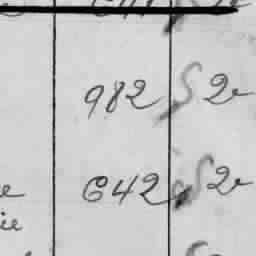 982 S 2e
642 S 2e
e
ie